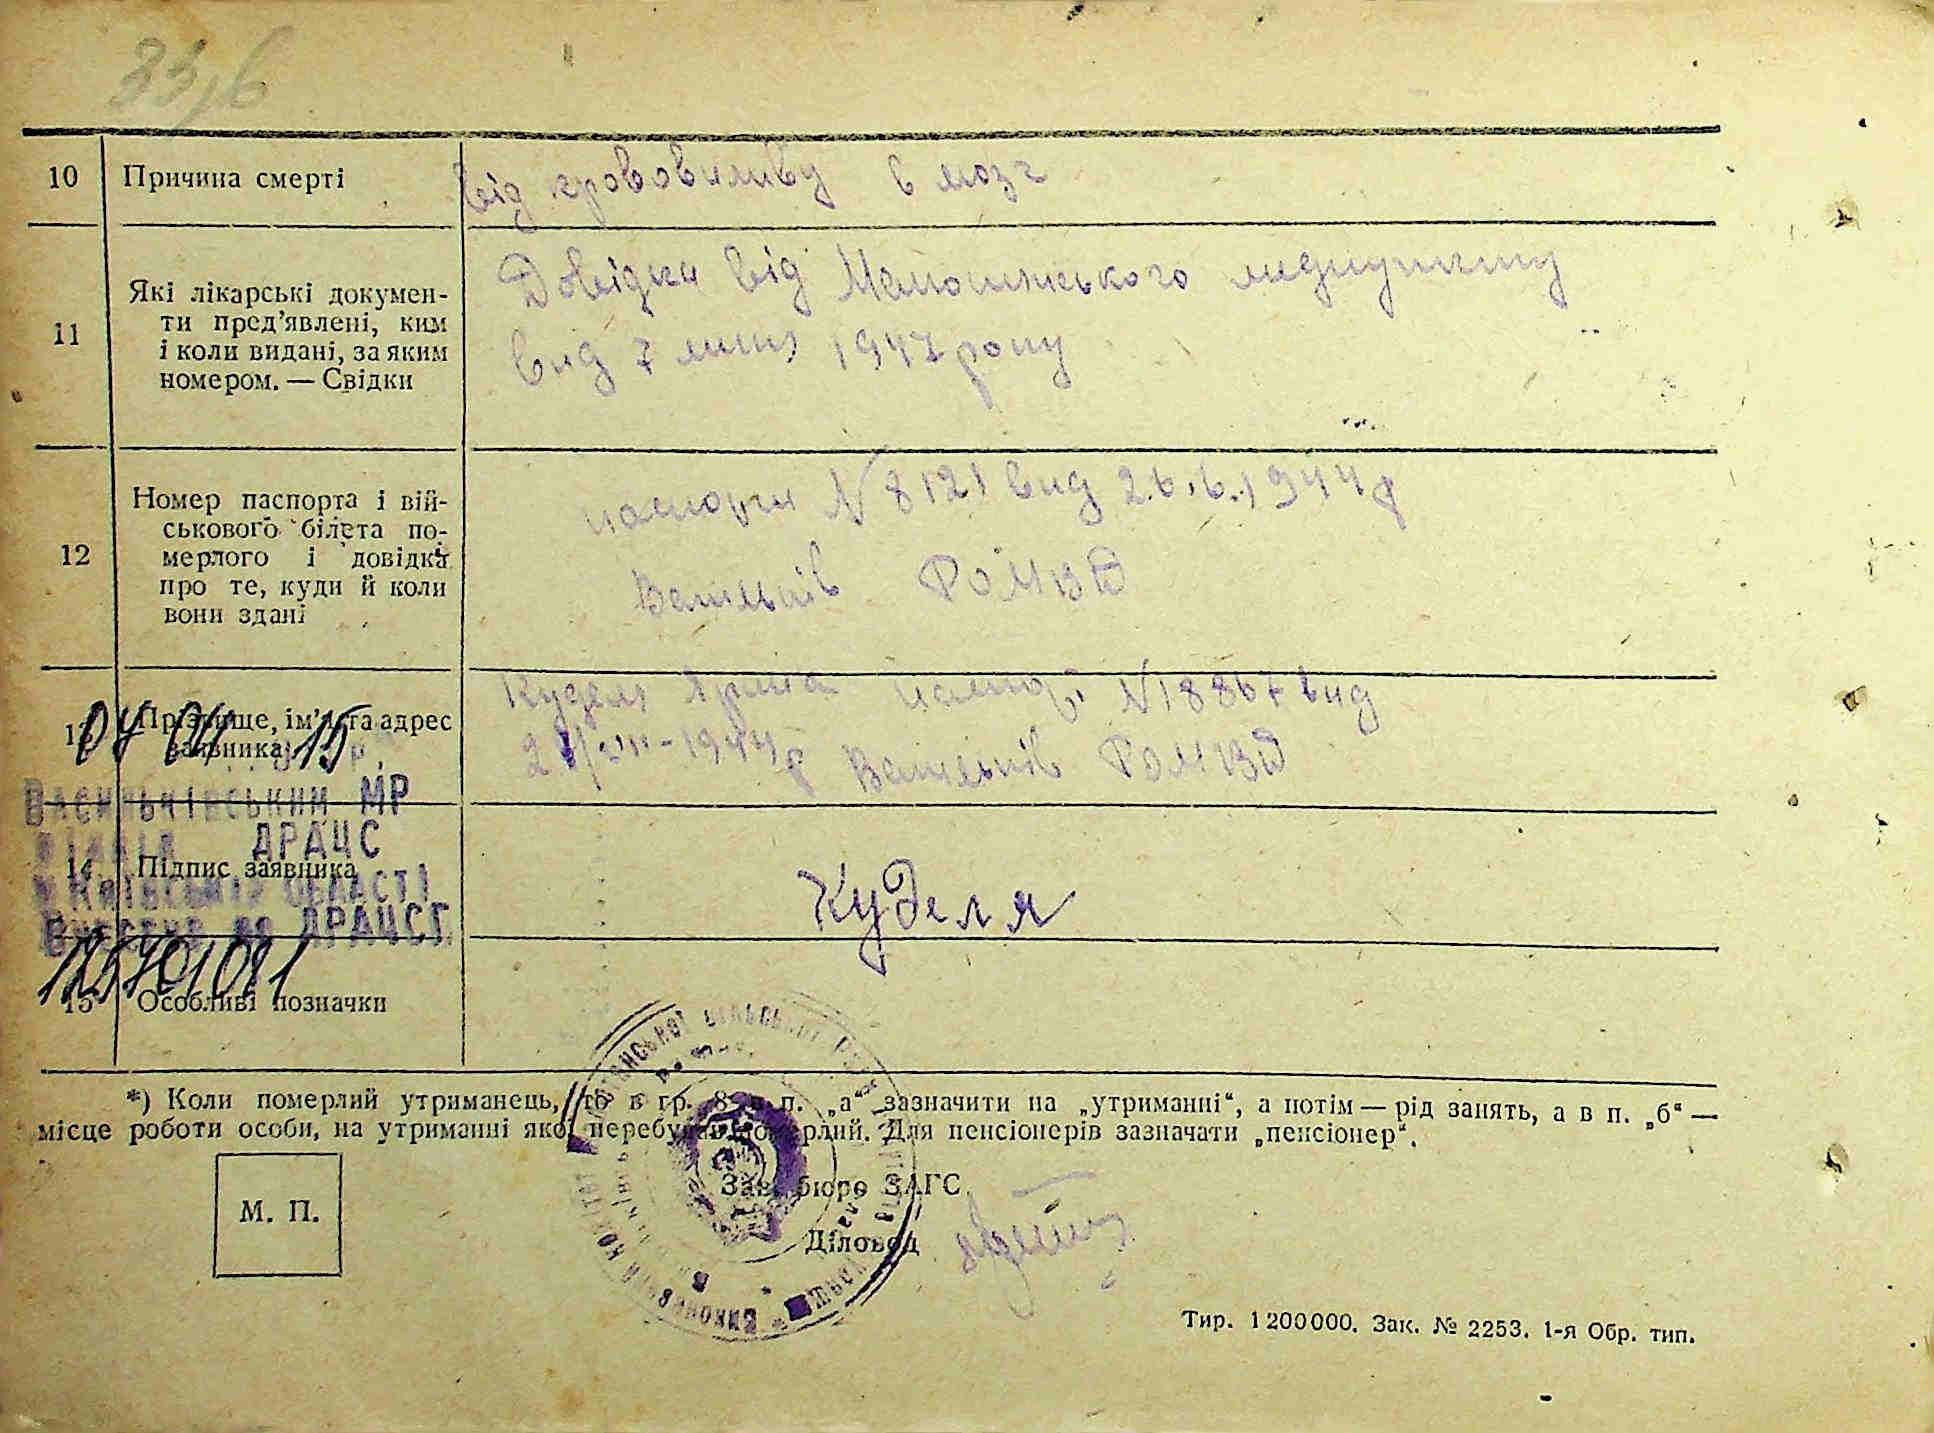 83,6
10 Причина смерті від крововиливу в мозг
11 Які лікарські докумен-
ти пред'явлені, ким
і коли видані, за яким
номером. — Свідки
Довідка від медпункту
вид 7 1947 року
12 Номер паспорта і вій-
ськового білета по-
мерлого і довідка
про те, куди й коли
вони здані
паспорт N 8121 вид 26.6.1944 р
Васильків РОМВД
13 Прізвище, ім'я та адрес
заявника
Куделя Ярина паспор. N 18867 вид
1944 р Васильків РОМВД
04 04 15 р.
Васильківський МР
відділ ДРАЦС
у Київській області
Внесено до ДРАЦСГ
14 Підпис заявника
Куделя
15 Особливі позначки
*) Коли померлий утриманець, то в гр. 8 в п. „а“ зазначити на „утриманні“, а потім — рід занять, а в п. „б“ —
місце роботи особи, на утриманні якої перебував померлий. Для пенсіонерів зазначати „пенсіонер“.
М. П.
Зав. бюро ЗАГС
Діловод
виконавчий комітет сільської
Тир. 1200000. Зак. № 2253. 1-я Обр. тип.